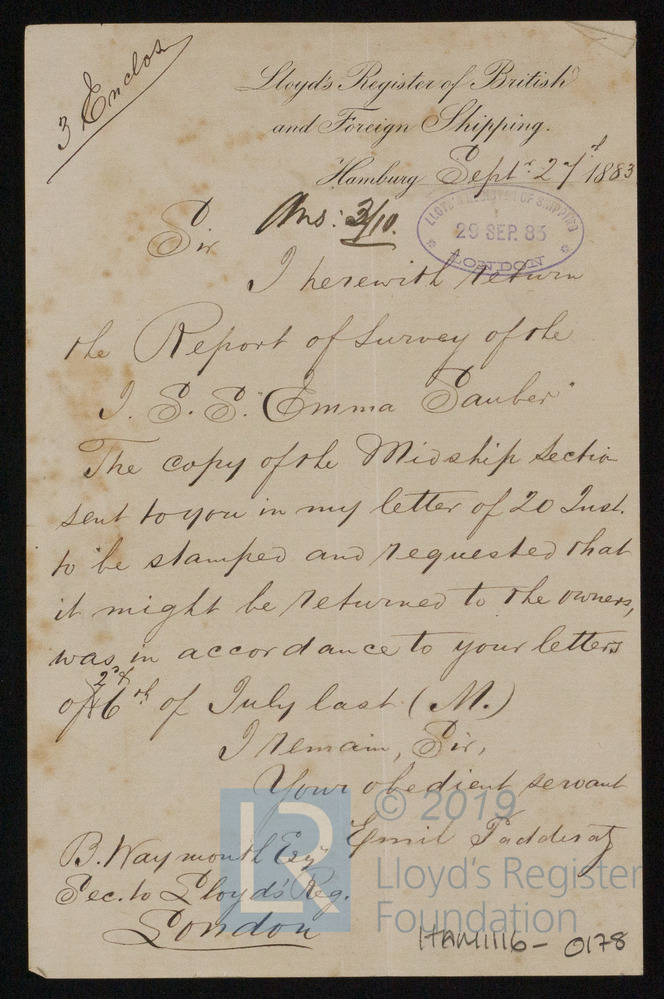 3 Enclos
Lloyd's Register of British
and Foreign Shipping.
Hamburg Septr 27d 1883
Ans: 3/10.
LLOYD'S REGISTER OF SHIPPING
29 SEP. 83
LONDON
Sir
I herewith return
the Report of Survey of the
I. S. S. "Emma Sauber"
The copy of the Midship Section
sent to you in my letter of 20 Inst.
to be stamped and requested that
it might be returned to the owners,
was in accordance to your letters
2d &
of 6th of July last (M.)
I remain, Sir,
Your obedient servant
Emil Padderatz
B. Waymouth Esqr
Sec. to Lloyd's Reg.
London
LR
© 2019
Lloyd's Register
Foundation
HAM1116-0178